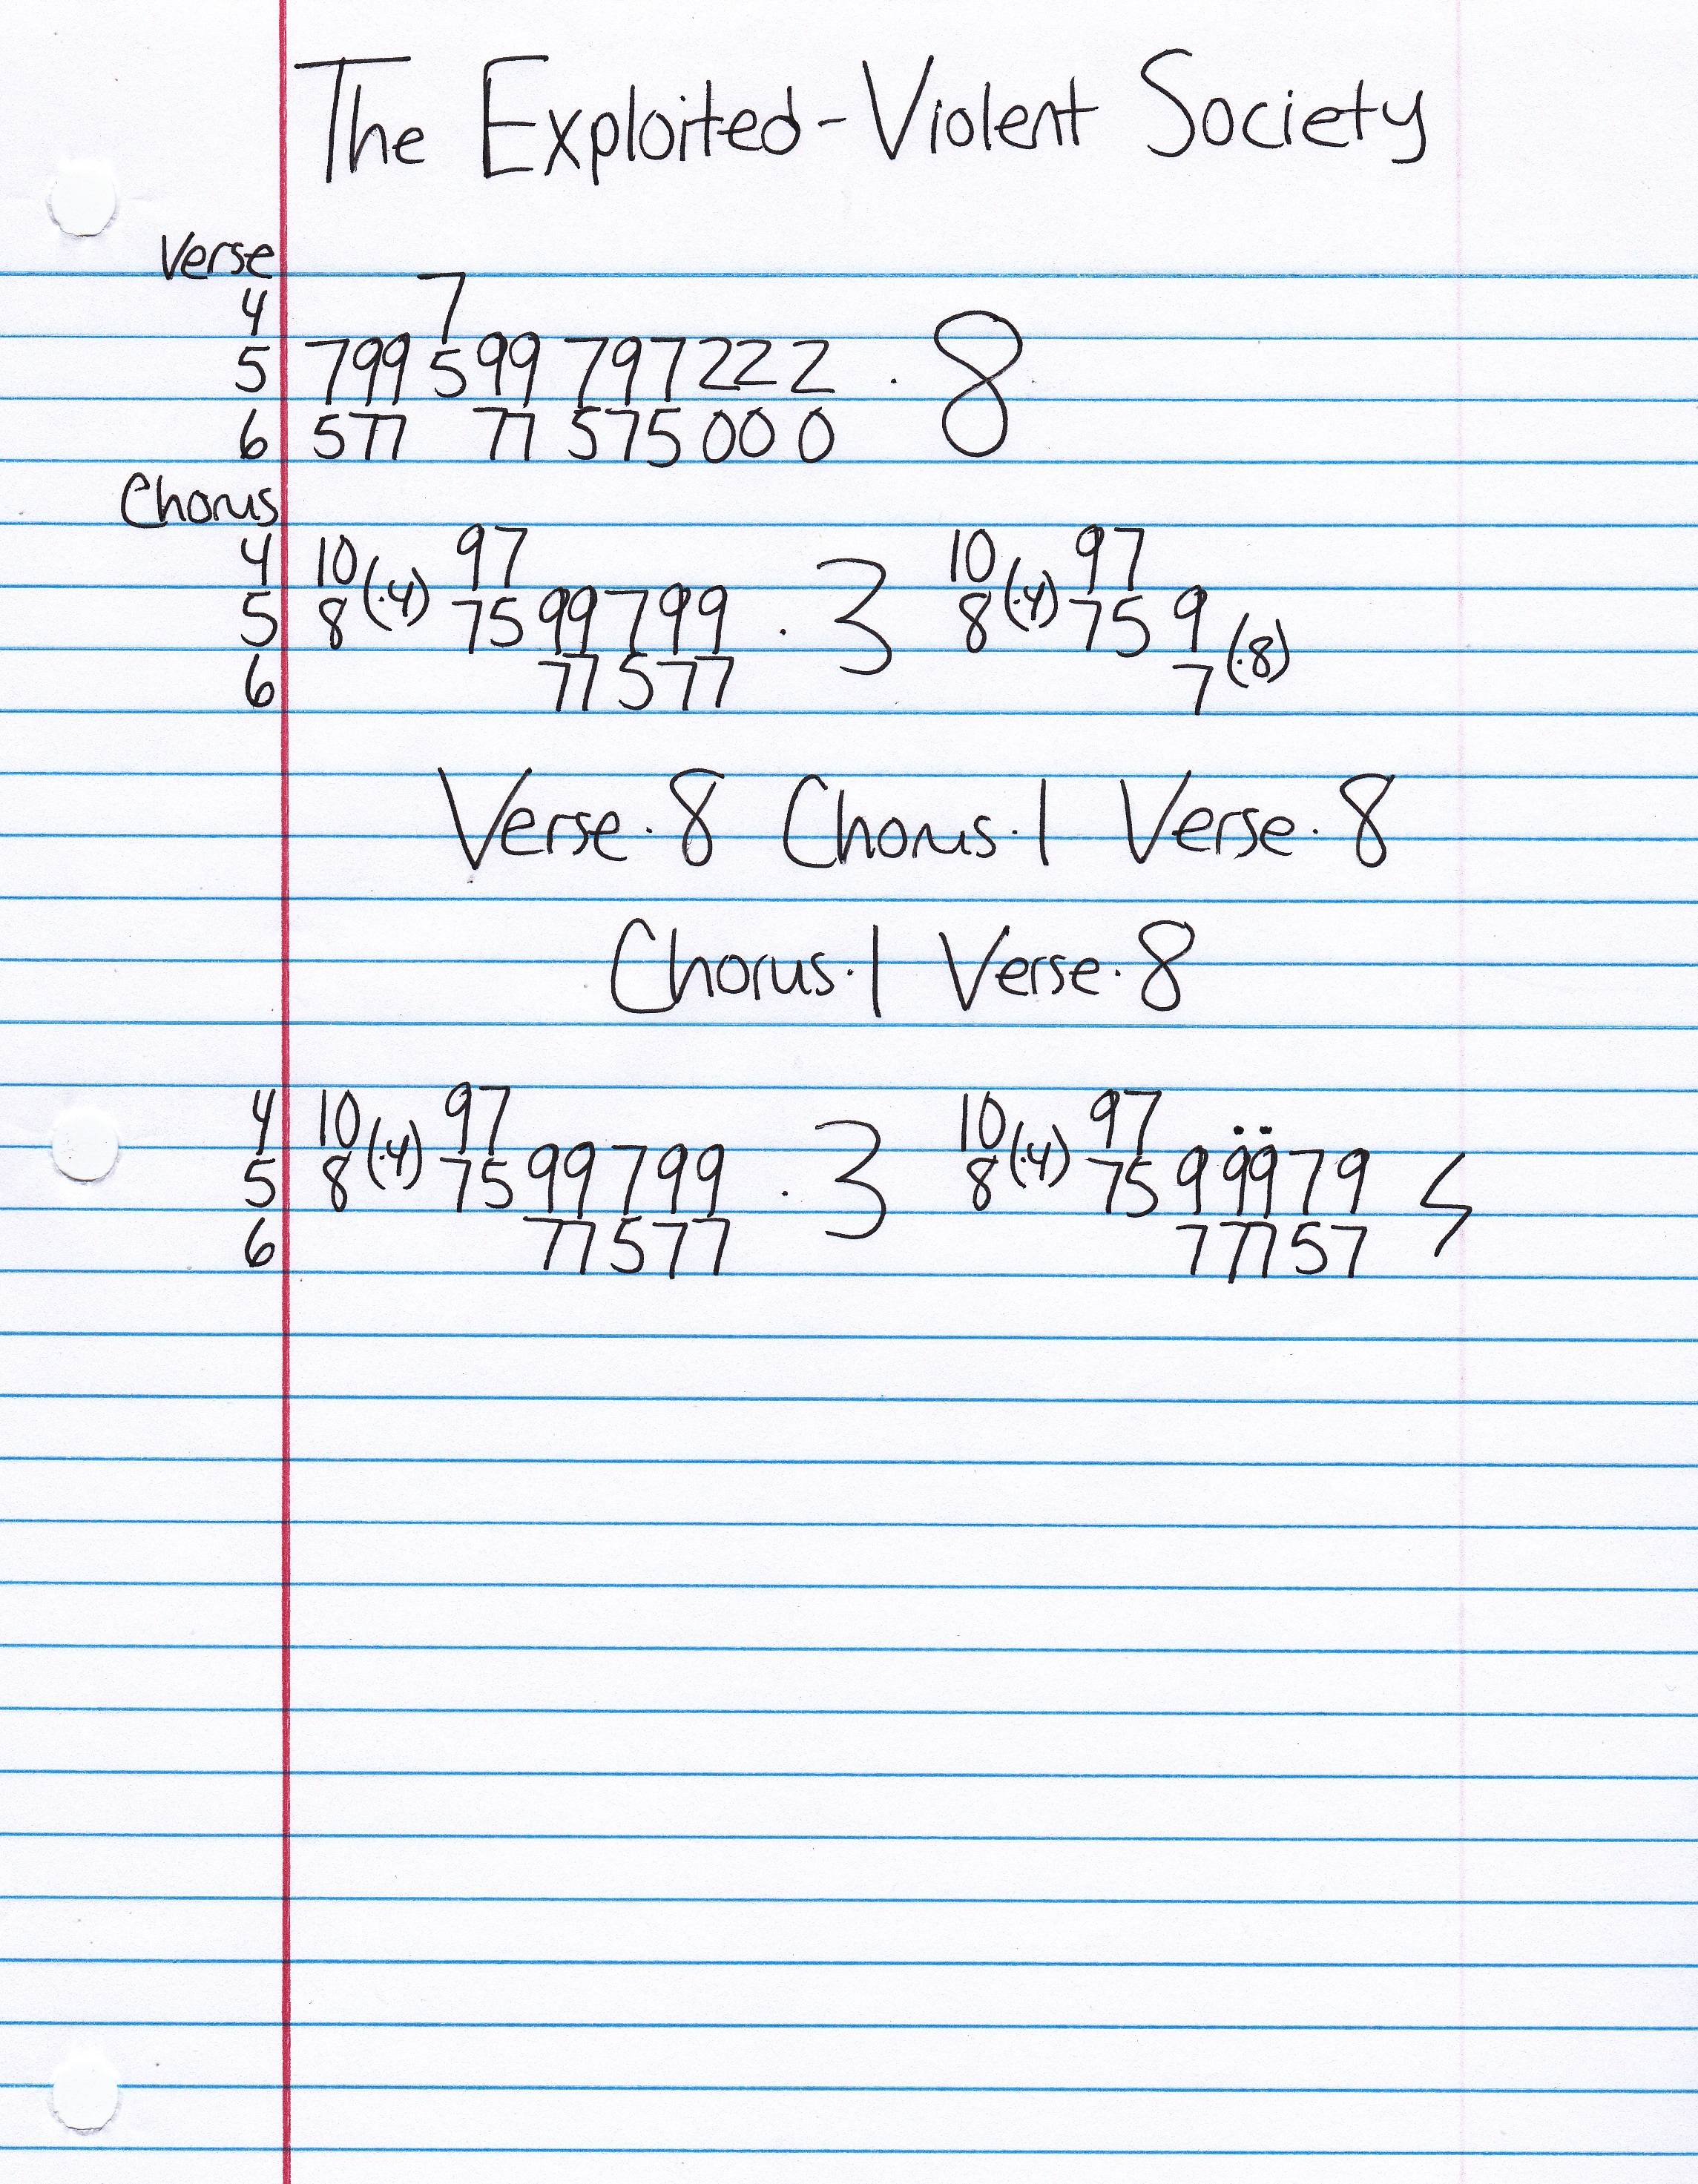 The Exploited-Violent Society
Verse
4 7
5 799 599 797 222 · 8
6 577 77 575 000
Chorus
4 10 97 10 97
5 8 (·4) 75 99 799 · 3 8 (·4) 75 9
6 77 577 7 (·8)
Verse·8 Chorus·1 Verse·8
Chorus·1 Verse·8
4 10 97 10 97
5 8 (·4) 75 99 799 · 3 8 (·4) 75 9 99 79
6 77577 77757